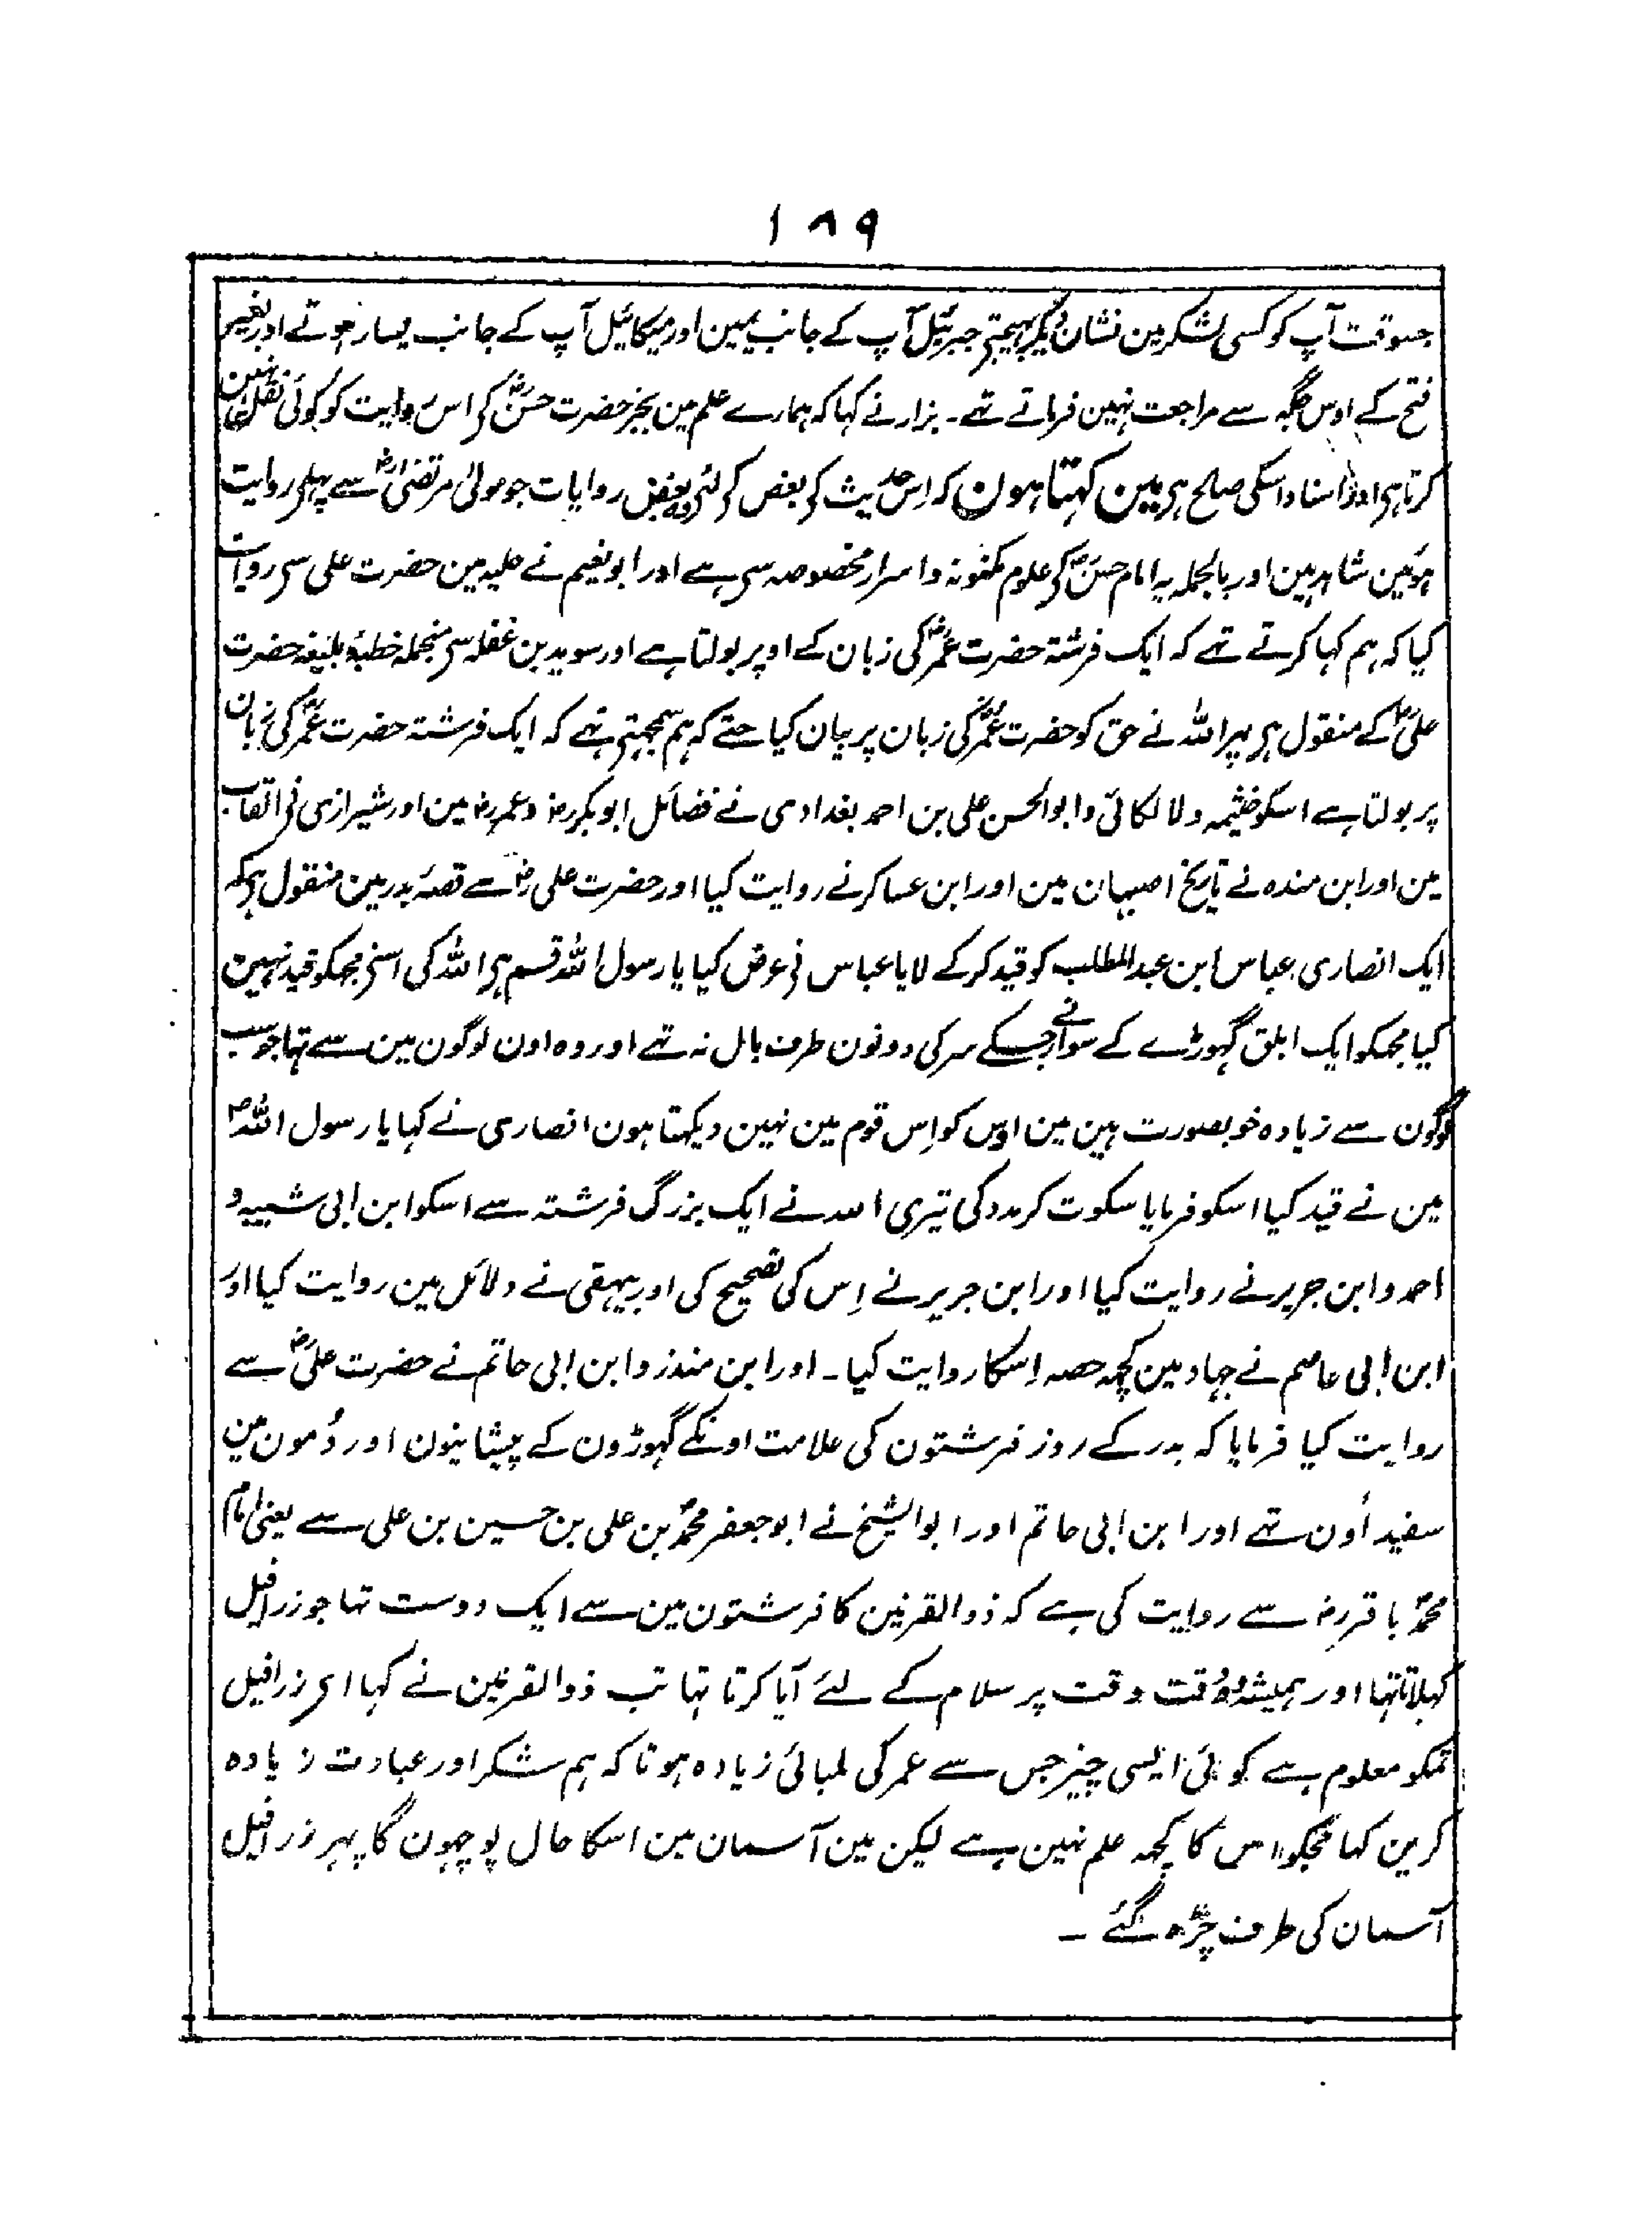 ۱۸۹
جسوقت آپ کو کسی لشکر مین نشان دیکر بہیجتے جبرئیل آپ کے جانب یمین اور میکائیل آپ کے جانب یسار ہوتے اور بغیر
فتح کے اوس جگہ سے مراجعت نہین فرماتے تہے۔ بزار نے کہا کہ ہمارے علم مین بجز حضرت حسنؓ کے اس روایت کو کوئی نقل نہین
کرتا ہی اور اسناد اسکی صلح ہی مین کہتا ہون کہ اِس حدیث کی بعض کی لئے بعض روایات جو مولیٰ مرتضیٰؓ سے پہلی روایت
ہوئین شاہد ہین اور بالجملہ یہ امام حسنؓ کی علوم مکنونہ و اسرار مخصوصہ سی ہے اور ابو نعیم نے حلیہ مین حضرت علی سی روایت
کیا کہ ہم کہا کرتے تہے کہ ایک فرشتہ حضرت عمرؓ کی زبان کے اوپر بولتا ہے اور سوید بن غفلہ سی منجملہ خطبۂ بلیغہ حضرت
علیؓ کے منقول ہی پہر اللہ نے حق کو حضرت عمرؓ کی زبان پر بیان کیا حتے کہ ہم سمجہتی تہے کہ ایک فرشتہ حضرت عمرؓ کی زبان
پر بولتا ہے اسکو خثیمہ و لالکائی و ابو الحسن علی بن احمد بغدادی نے فضائل ابو بکررض و عمررض مین اور شیرازی نی القاب
مین اور ابن مندہ نے تاریخ اصبہان مین اور ابن عساکر نے روایت کیا اور حضرت علی رضؓ سے قصۂ بدر مین منقول ہی کہ
ایک انصاری عباس ابن عبد المطلب کو قید کر کے لایا عباس نی عرض کیا یا رسول اللہ قسم ہی اللہ کی اسنی مجہکو قید نہین
کیا مجہکو ایک ابلق گہوڑے کے سوار نے جسکے سر کی دونون طرف بال نہ تہے اور وہ اون لوگون مین سے تہا جو سب
لوگون سے زیادہ خوبصورت ہین مین اوس کو اِس قوم مین نہین دیکہتا ہون انصاری نے کہا یا رسول اللہؐ
مین نے قید کیا اسکو فرمایا سکوت کر مدد کی تیری اللہ نے ایک بزرگ فرشتہ سے اسکو ابن ابی شیبہ و
احمد و ابن جریر نے روایت کیا اور ابن جریر نے اِس کی تصحیح کی اور بیہقی نے دلائل مین روایت کیا اور
ابن ابی عاصم نے جہاد مین کچہہ حصہ اِسکا روایت کیا۔ اور ابن منذر و ابن ابی حاتم نے حضرت علیؓ سے
روایت کیا فرمایا کہ بدر کے روز فرشتون کی علامت اونکے گہوڑون کے پیشانیون اور دُمون مین
سفید اُون تہے اور ابن ابی حاتم اور ابو الشیخ نے ابو جعفر محمدؐ بن علی بن حسین بن علی سے یعنی امام
محمدؐ باقررض سے روایت کی ہے کہ ذوالقرنین کا فرشتون مین سے ایک دوست تہا جو زرافیل
کہلاتا تہا اور ہمیشہ وقت وقت پر سلام کے لئے آیا کرتا تہا تب ذوالقرنین نے کہا ای زرافیل
تمکو معلوم ہے کوئی ایسی چیز جس سے عمر کی لمبائی زیادہ ہو تاکہ ہم شکر اور عبادت زیادہ
کرین کہا مجہکو اس کا کچہہ علم نہین ہے لیکن مین آسمان مین اسکا حال پوچہون گا پہر زرافیل
آسمان کی طرف چڑہ گئے ۔